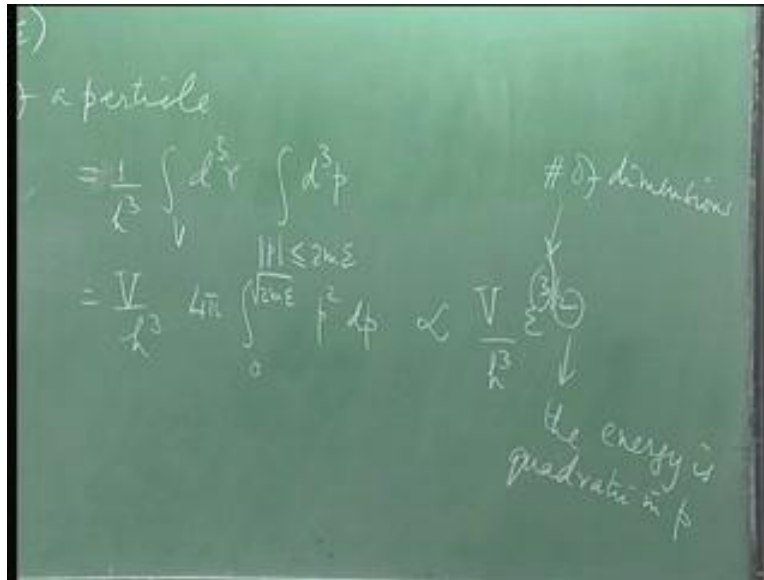 ε)
of a particle
= 1/h³ ∫_V d³r ∫_{|p| ≤ 2mε} d³p
# of dimensions
= V/h³ 4π ∫_0^{√2mε} p² dp ∝ V/h³ ε^{3/2}
the energy is
quadratic in p